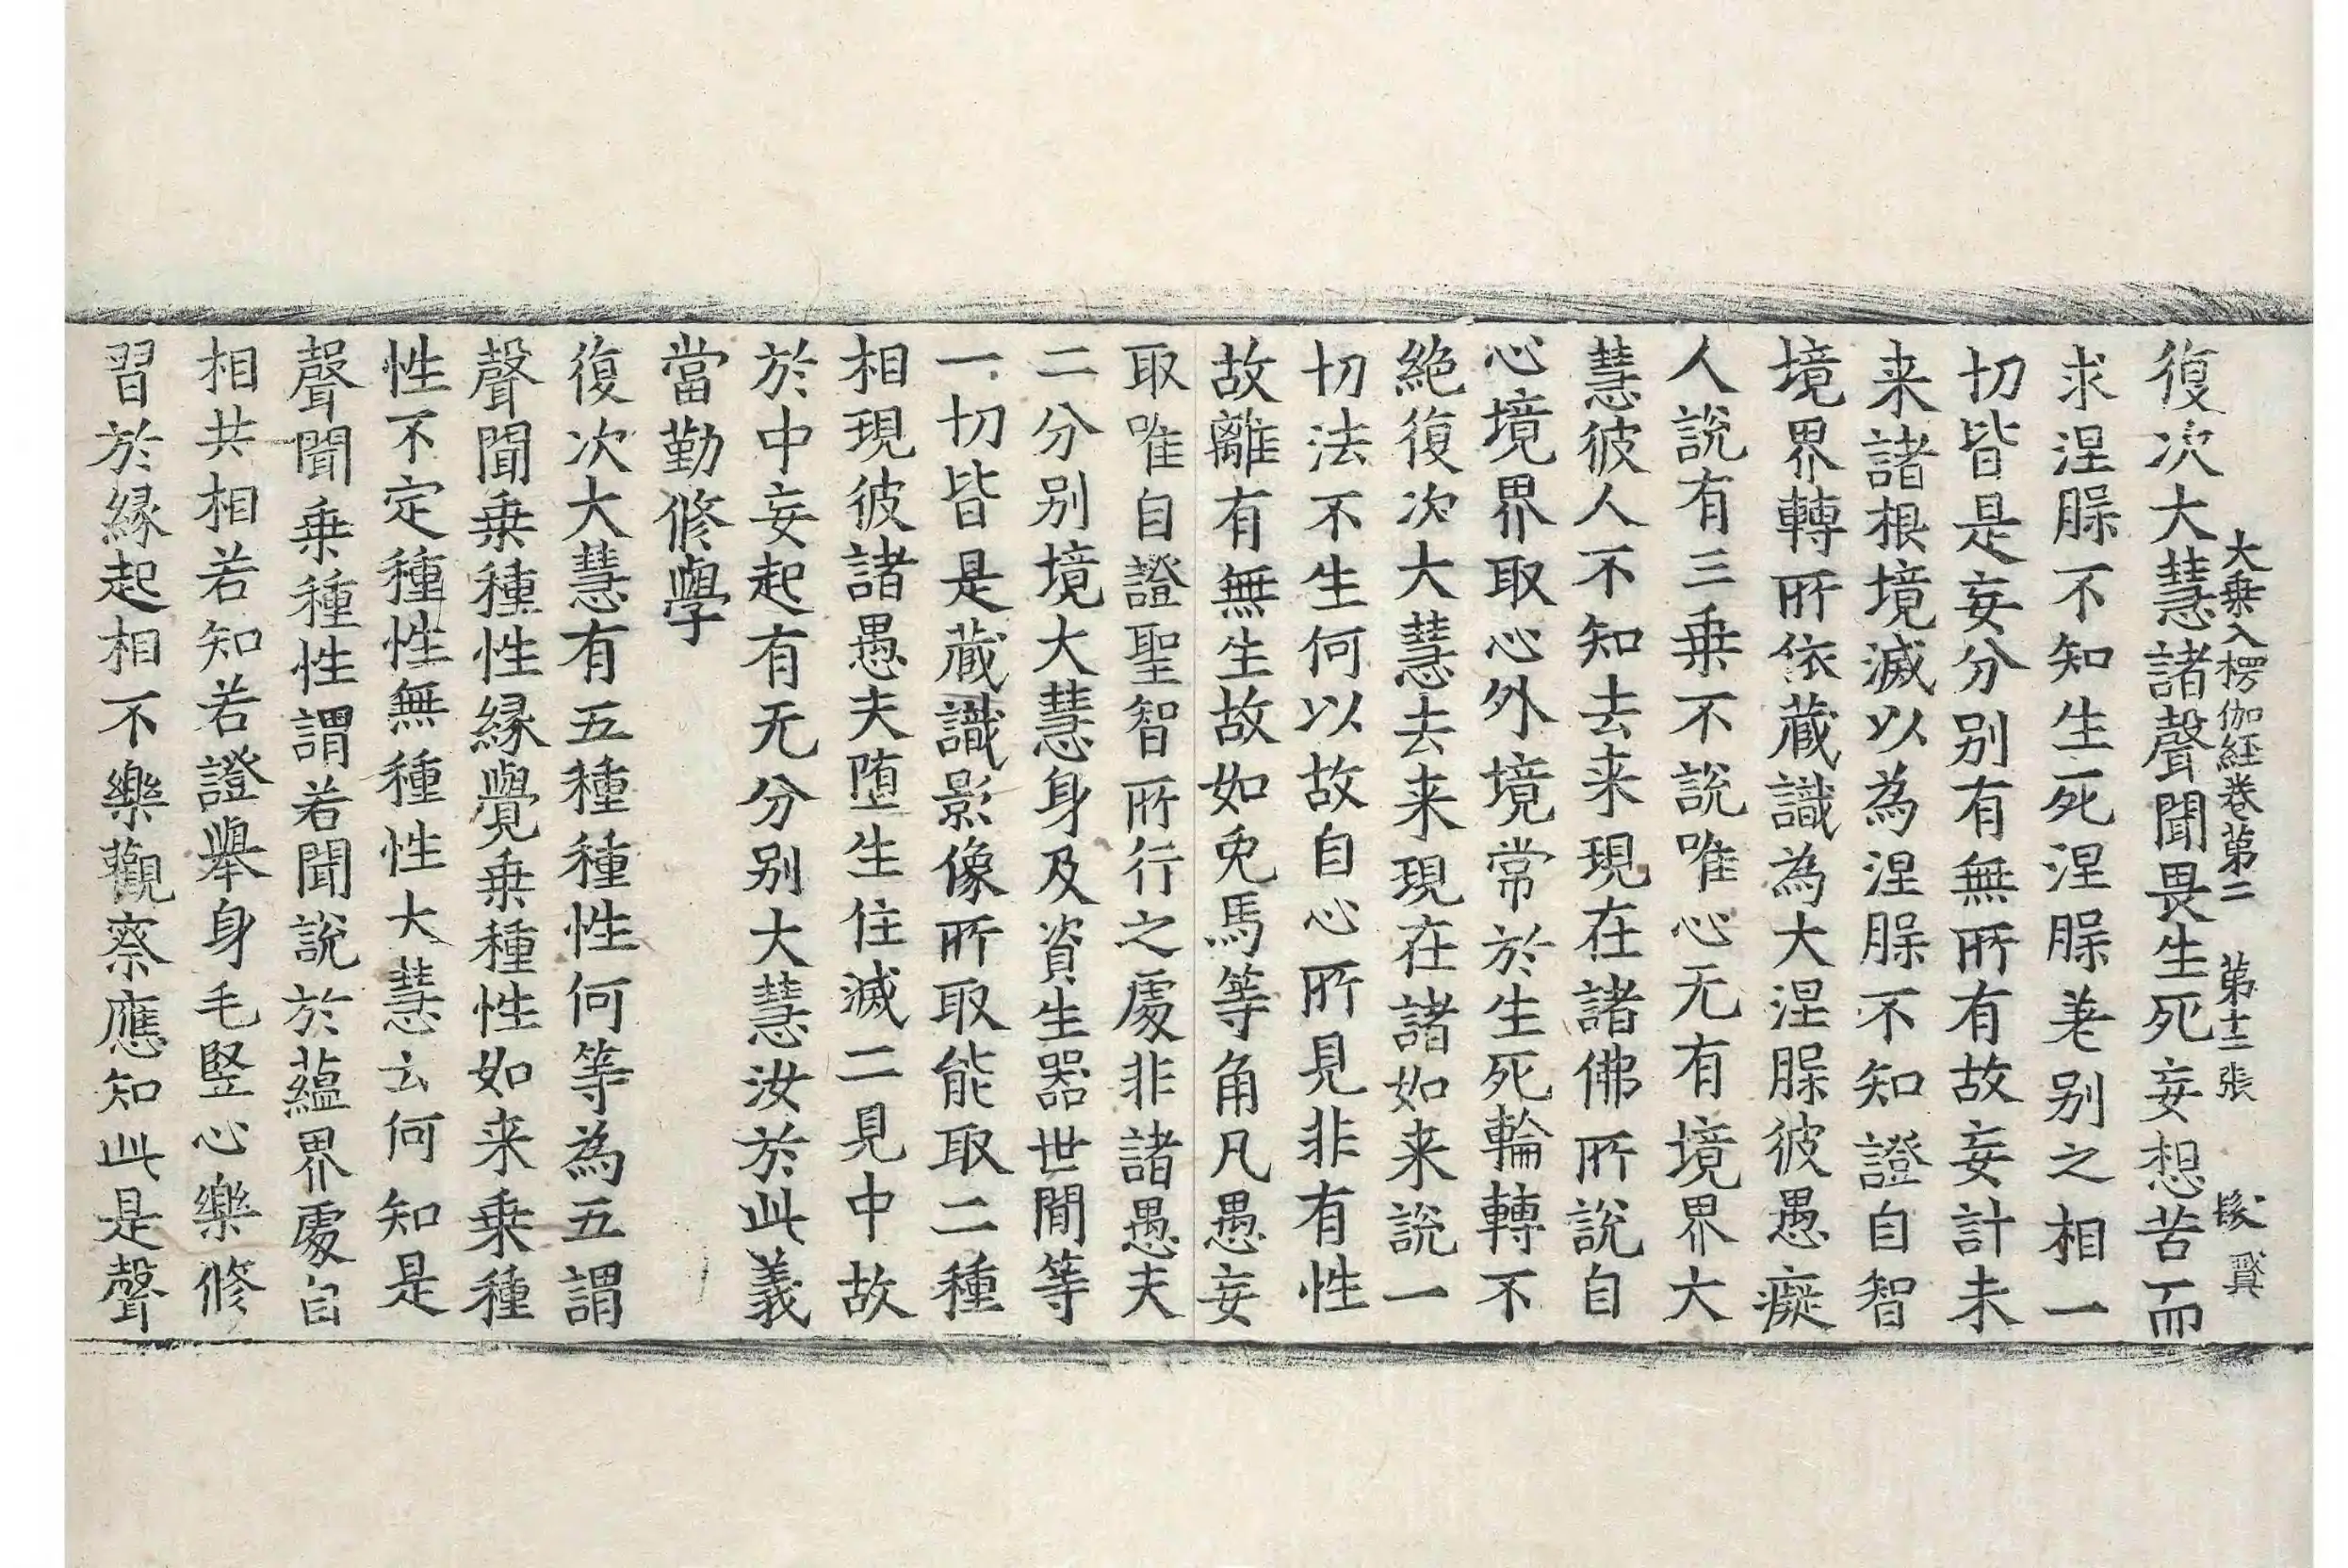 大乗入楞伽経卷第二 第十二張
復次大慧諸聲聞畏生死妄想苦而
求涅䐗不知生死涅䐗差别之相一
切皆是妄分别有無所有故妄計未
来諸根境滅以為涅䐗不知證自智
境界轉所依蔵識為大涅䐗彼愚癡
人說有三乗不說唯心无有境界大
慧彼人不知去来現在諸佛所說自
心境界取心外境常於生死輪轉不
絶復次大慧去来現在諸如来說一
切法不生何以故自心所見非有性
故離有無生故如兔馬等角凡愚妄
取唯自證聖智所行之處非諸愚夫
二分别境大慧身及資生器世間等
一切皆是蔵識影像所取能取二種
相現彼諸愚夫堕生住滅二見中故
於中妄起有无分别大慧汝於此義
當勤修學
復次大慧有五種種性何等為五謂
聲聞乗種性縁覺乗種性如来乗種
性不定種性無種性大慧云何知是
聲聞乗種性謂若聞說於蘊界處自
相共相若知若證舉身毛竪心樂修
習於縁起相不樂觀察應知此是聲